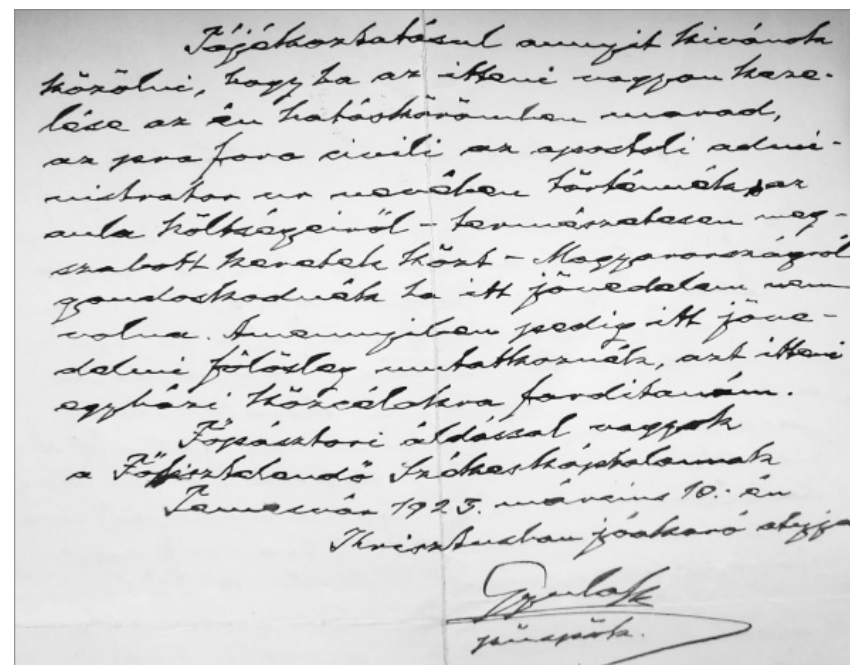 Tájékoztatásul annyit kivánok
közölni, hogy ha az itteni vagyon keze-
lése az én hatáskörömben marad,
az pro foro civili az apostoli admi-
nistrator ur nevében történnék, az
aula költségeiről – természetesen meg-
szabott keretek közt – Magyarországról
gondoskodnék ha itt jövedelem nem
volna. Amennyiben pedig itt jöve-
delmi fölösleg mutatkoznék, azt itteni
egyházi közcélokra forditanám.
Főpásztori áldással vagyok
a Főtisztelendő Székeskáptalannak
Temesvár 1923. március 10.-én
Krisztusban jóakaró atyja
Gyula
püspök.